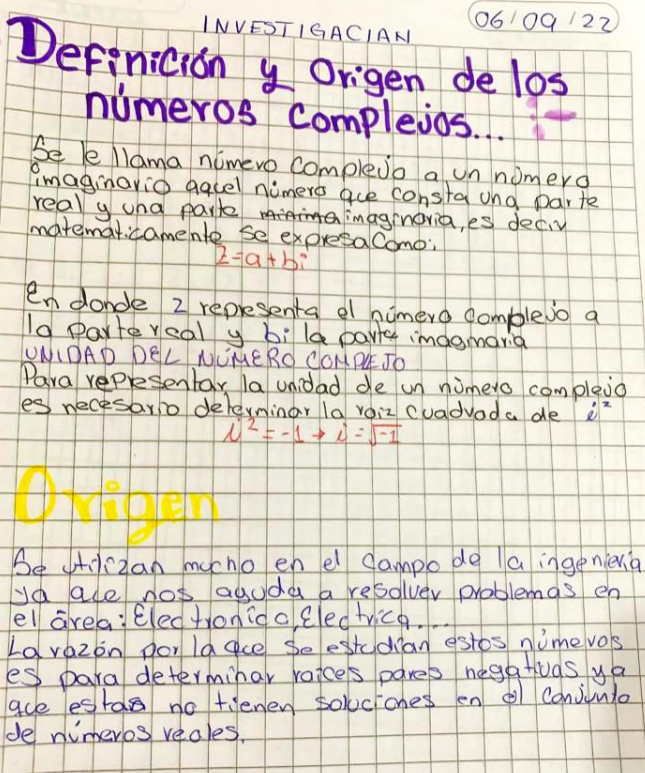 06/09/22
INVESTIGACIAN
Definición y Origen de los
números complejos... :-
Se le llama número complejo a un número
imaginario aquel número que consta una parte
real y una parte imaginaria, es decir
matemáticamente se expresa como:
z=a+bi
En donde z representa el número complejo a
la parte real y bi la parte imaginaria
UNIDAD DEL NÚMERO COMPLEJO
Para representar la unidad de un número complejo
es necesario determinar la raiz cuadrada de i²
i²=-1→i=√-1
Origen
Se utilizan mucho en el campo de la ingeniería
ya que nos ayuda a resolver problemas en
el área: Electronica, Electrica....
La razón por la que se estudian estos números
es para determinar raíces pares negativas ya
que estas no tienen soluciones en el conjunto
de números reales.